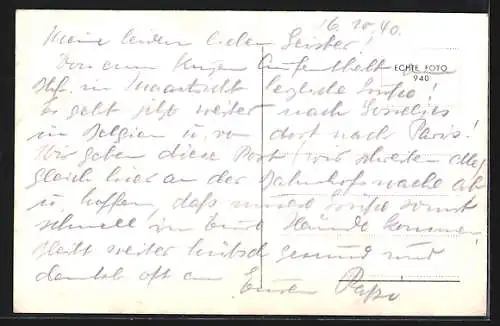 16.10.40.
Meine beiden lieben Geister!
Von einem kurzen Aufenthalt am
Bhf. in Maastricht herzliche Grüße!
Es geht jetzt weiter nach
in Belgien u. von dort nach Paris!
Wir geben diese Post (wir schreiben alle)
gleich hier an der Bahnhofswache ab
u. hoffen, daß unsere Grüße somit
schnell in Eure Hände kommen.
Bleibt weiter hübsch gesund und
denkt oft an Euren Papa
ECHTE FOTO
940